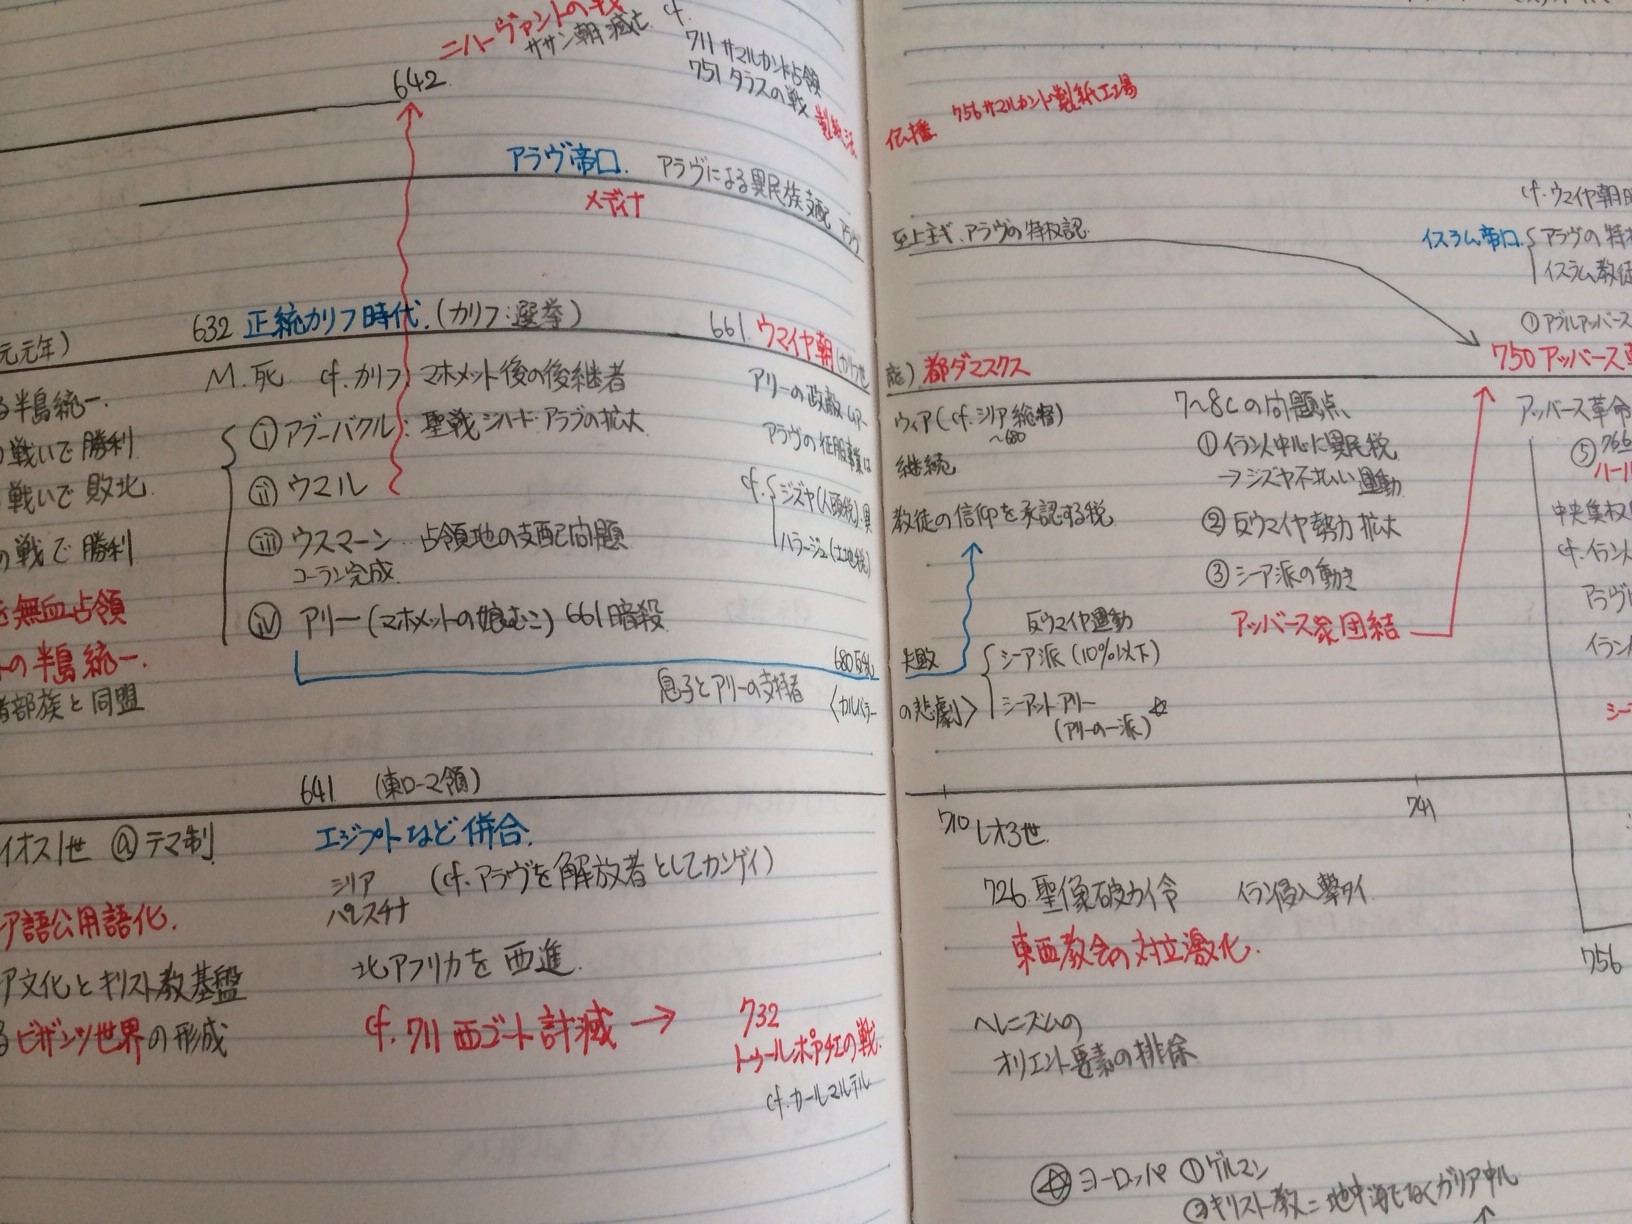 ニハーヴァントの戦
ササン朝滅亡
cf.
711 サマルカンド占領
751 タラスの戦
製紙法
642
アラヴ帝口.
アラヴによる異民族支配 アラヴ
メディナ
632 正統カリフ時代.(カリフ:選挙)
661. ウマイヤ朝
元元年)
M.死 cf.カリフ:マホメット後の後継者
る半島統一.
戦いで勝利
戦いで敗北.
の戦で勝利
無血占領
の半島統一.
部族と同盟
ⅰ アブーバクル:聖戦ジハード・アラブの拡大
ⅱ ウマル
ⅲ ウスマーン…占領地の支配問題
コーラン完成.
ⅳ アリー(マホメットの娘むこ) 661暗殺
アリーの政敵 ムアー
アラヴの征服事業は
cf. ジズヤ(人頭税).異
ハラージュ(土地税)
680反乱
息子とアリーの支持者
〈カルバラー
641 (東ローマ領)
イオス1世 @テマ制
エジプトなど併合.
シリア
パレスチナ
(cf.アラヴを解放者としてカンゲイ)
ア語公用語化.
ア文化とキリスト教基盤
るビザンツ世界の形成
北アフリカを西進.
cf. 711 西ゴート討滅 →
732
トゥールポアチエの戦.
cf.カールマルテル
伝播.
756サマルカンド製紙工場
至上主ギ.アラヴの特权認.
cf.ウマイヤ朝
イスラム帝口.
アラヴの特
イスラム教徒
①アブルアッバース
750 アッバース
都ダマスクス
ウィア(cf.シリア総督)
~680
継続
教徒の信仰を承認する税
7~8Cの問題点
①イラン人中心に異民税
→ジズヤ不払い運動
②反ウマイヤ勢力拡大
③シーア派の動き
アッバース家団結
アッバース革命
⑤766
中央集权
cf.イラン人
アラヴ
イラン
失敗
の悲劇〉
反ウマイヤ運動
シーア派(10%以下)
シーアットアリー
(アリーの一派)☆
710 レオ3世.
741
726.聖像破カイ令 イラン侵入撃タイ
東西教会の対立激化.
756
ヘレニズムの
オリエント要素の排除
☆ヨーロッパ ①ゲルマン
②キリスト教=地中海でなくガリア中心